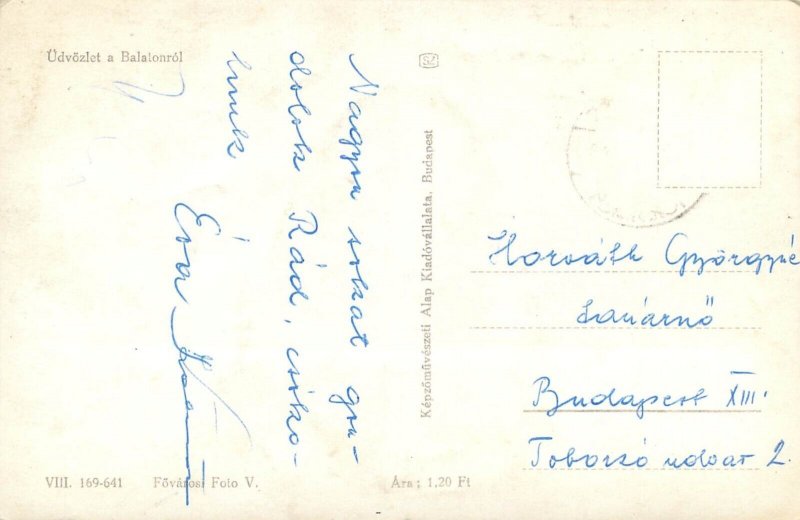 Üdvözlet a Balatonról
Nagyon sokat gon-
dolok Rád, csóko-
lunk
Éva
Képzőművészeti Alap Kiadóvállalata, Budapest
Horváth Györgyné
tanárnő
Budapest XIII.
Toborzó udvar 2.
VIII. 169-641 Fővárosi Foto V. Ára: 1,20 Ft